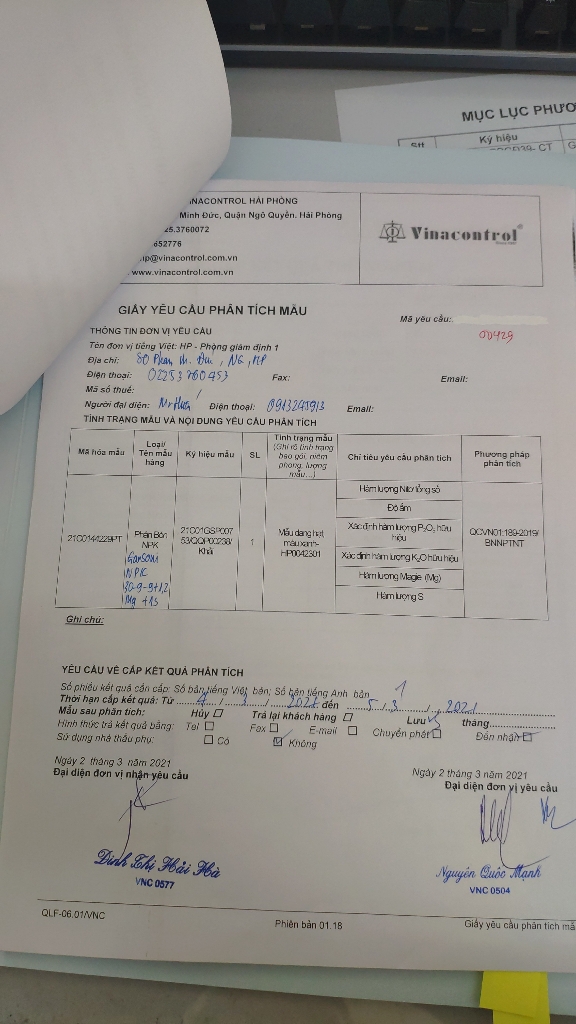 MỤC LỤC PHƯƠ
Stt
Ký hiệu
INACONTROL HẢI PHÒNG
Minh Đức, Quận Ngô Quyền. Hải Phòng
25.3760072
652776
ip@vinacontrol.com.vn
www.vinacontrol.com.vn
Vinacontrol®
GIẤY YÊU CẦU PHÂN TÍCH MẪU
Mã yêu cầu:
00429
THÔNG TIN ĐƠN VỊ YÊU CẦU
Tên đơn vị tiếng Việt: HP - Phòng giám định 1
Địa chỉ: 80 Phạm M. Đức, NQ, HP
Điện thoại: 02253760453 Fax: Email:
Mã số thuế:
Người đại diện: Mr Điện thoại: 0913245913 Email:
TÌNH TRẠNG MẪU VÀ NỘI DUNG YÊU CẦU PHÂN TÍCH
Mã hóa mẫu
Loại/ Tên mẫu hàng
Ký hiệu mẫu
SL
Tình trạng mẫu (Ghi rõ tình trạng bao gói, niêm phong, lượng mẫu...)
Chỉ tiêu yêu cầu phân tích
Phương pháp phân tích
21C0144229PT
Phân Bón NPK
Garsoni
NPK
20-9-9+1,2
Mg +1S
21C01GSP007
53/QQP00238/
Khải
1
Mẫu dạng hạt, màu xanh-
HP0042301
Hàm lượng Nitơ tổng số
Độ ẩm
Xác định hàm lượng P₂O₅ hữu hiệu
Xác định hàm lượng K₂O hữu hiệu
Hàm lượng Magiê (Mg)
Hàm lượng S
QCVN01:189-2019/
BNNPTNT
Ghi chú:
YÊU CẦU VỀ CẤP KẾT QUẢ PHÂN TÍCH
Số phiếu kết quả cần cấp: Số bản tiếng Việt bản; Số bản tiếng Anh bản 1
Thời hạn cấp kết quả: Từ 4 / 3 / 2021 đến 5 / 3 / 2021
Mẫu sau phân tích: Hủy Trả lại khách hàng Lưu tháng
Hình thức trả kết quả bằng: Tel Fax E-mail Chuyển phát Đến nhận
Sử dụng nhà thầu phụ: Có Không
Ngày 2 tháng 3 năm 2021
Đại diện đơn vị nhận yêu cầu
Ngày 2 tháng 3 năm 2021
Đại diện đơn vị yêu cầu
Đinh Thị Hải Hà
VNC 0577
Nguyễn Quốc Mạnh
VNC 0504
QLF-06.01/VNC
Phiên bản 01.18
Giấy yêu cầu phân tích mẫ